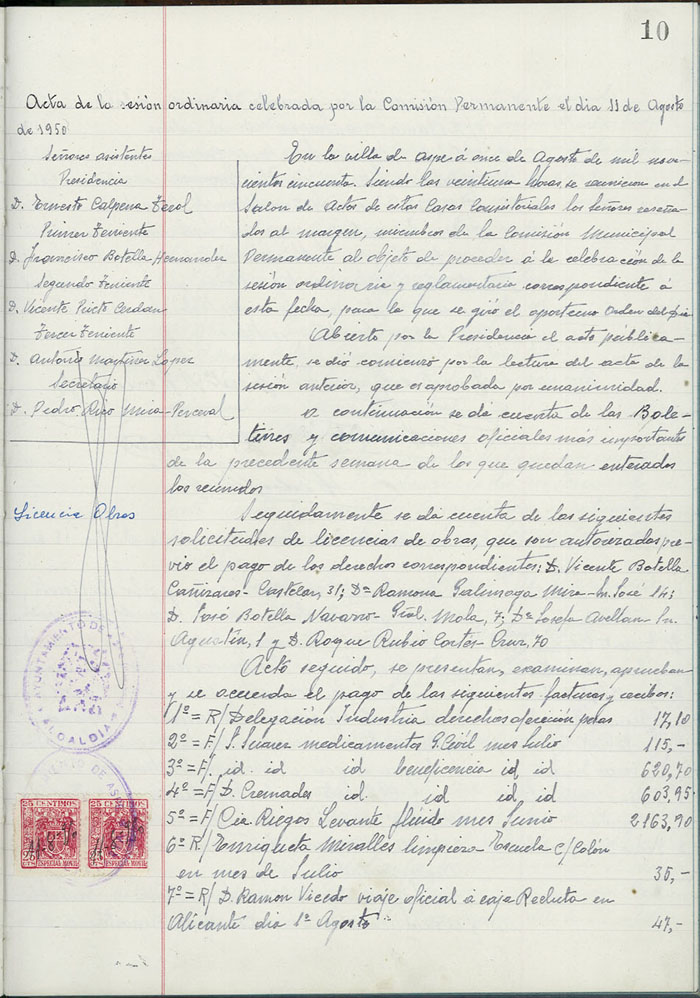 10
Acta de la sesión ordinaria celebrada por la Comisión Permanente el dia 11 de Agosto
de 1950
Señores asistentes
Presidencia
D. Ernesto Calpena Terol
Primer Teniente
D. Francisco Botella Hernandez
Segundo Teniente
D. Vicente Prieto Cerdan
Tercer Teniente
D. Antonio Martinez Lopez
Secretario
D. Pedro Rico Mira-Perceval
En la villa de Aspe á once de Agosto de mil nove-
cientos cincuenta. Siendo las veintiuna horas se reunieron en el
Salon de Actos de estas Casas Consistoriales los Señores reseña-
dos al margen, miembros de la Comisión Municipal
Permanente al objeto de proceder á la celebración de la
sesión ordinaria y reglamentaria correspondiente á
esta fecha, para la que se giró el oportuno Orden del dia
Abierto por la Presidencia el acto pública-
mente, se dió comienzo por la lectura del acta de la
sesión anterior, que es aprobada por unanimidad.
A continuación se da cuenta de los Bole-
tines y comunicaciones oficiales más importantes
de la precedente semana de los que quedan enterados
los reunidos
Licencia Obras
Seguidamente se dá cuenta de las siguientes
solicitudes de licencias de obras, que son autorizadas pre-
vio el pago de los derechos correspondientes: D. Vicente Botella
Cañizares - Castelar, 31; Dª Ramona Galinsoga Mira - Sn. José 14;
D. José Botella Navarro - Gral. Mola, 7; Dª Josefa Avellan - Sn.
Agustín, 1 y D. Roque Rubio Cortés - Cruz, 70
Acto seguido, se presentan, examinan, aprueban
y se acuerda el pago de las siguientes facturas y recibos:
1º = R/ Delegación Industria derechos pesas 17,10
2º = F/ S. Suarez medicamentos G. Civil mes Julio 115,-
3º = F/. id. id id beneficencia id, id 620,70
4º = F/ D. Cremades id. id id, id 603,95
5º = F/ Cia Riegos Levante fluido mes Junio 2163,90
6º R/ Enriqueta Miralles limpieza Escuela C/ Colón
en mes de Julio 35,-
7º = R/ D. Ramon Vicedo viaje oficial á caja Recluta en
Alicante dia 1º Agosto 47,-
AYUNTAMIENTO DE
ALCALDIA
25 CENTIMOS
25 CENTIMOS
ESPECIAL MOVIL
ESPECIAL MOVIL